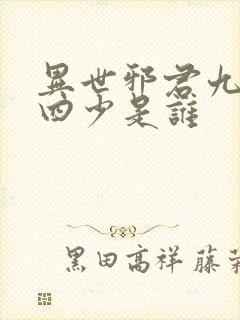 異世邪君九
四少是誰
黑田高祥 藤